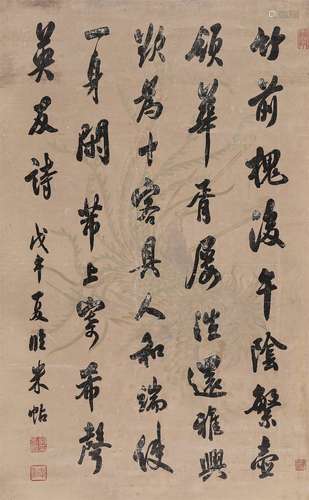 竹前槐後午陰繁壺
領華胥屢往還雅興
欲為十客具人和端使
一身閒芾上寄希聲
英友詩 戊午夏臨米帖